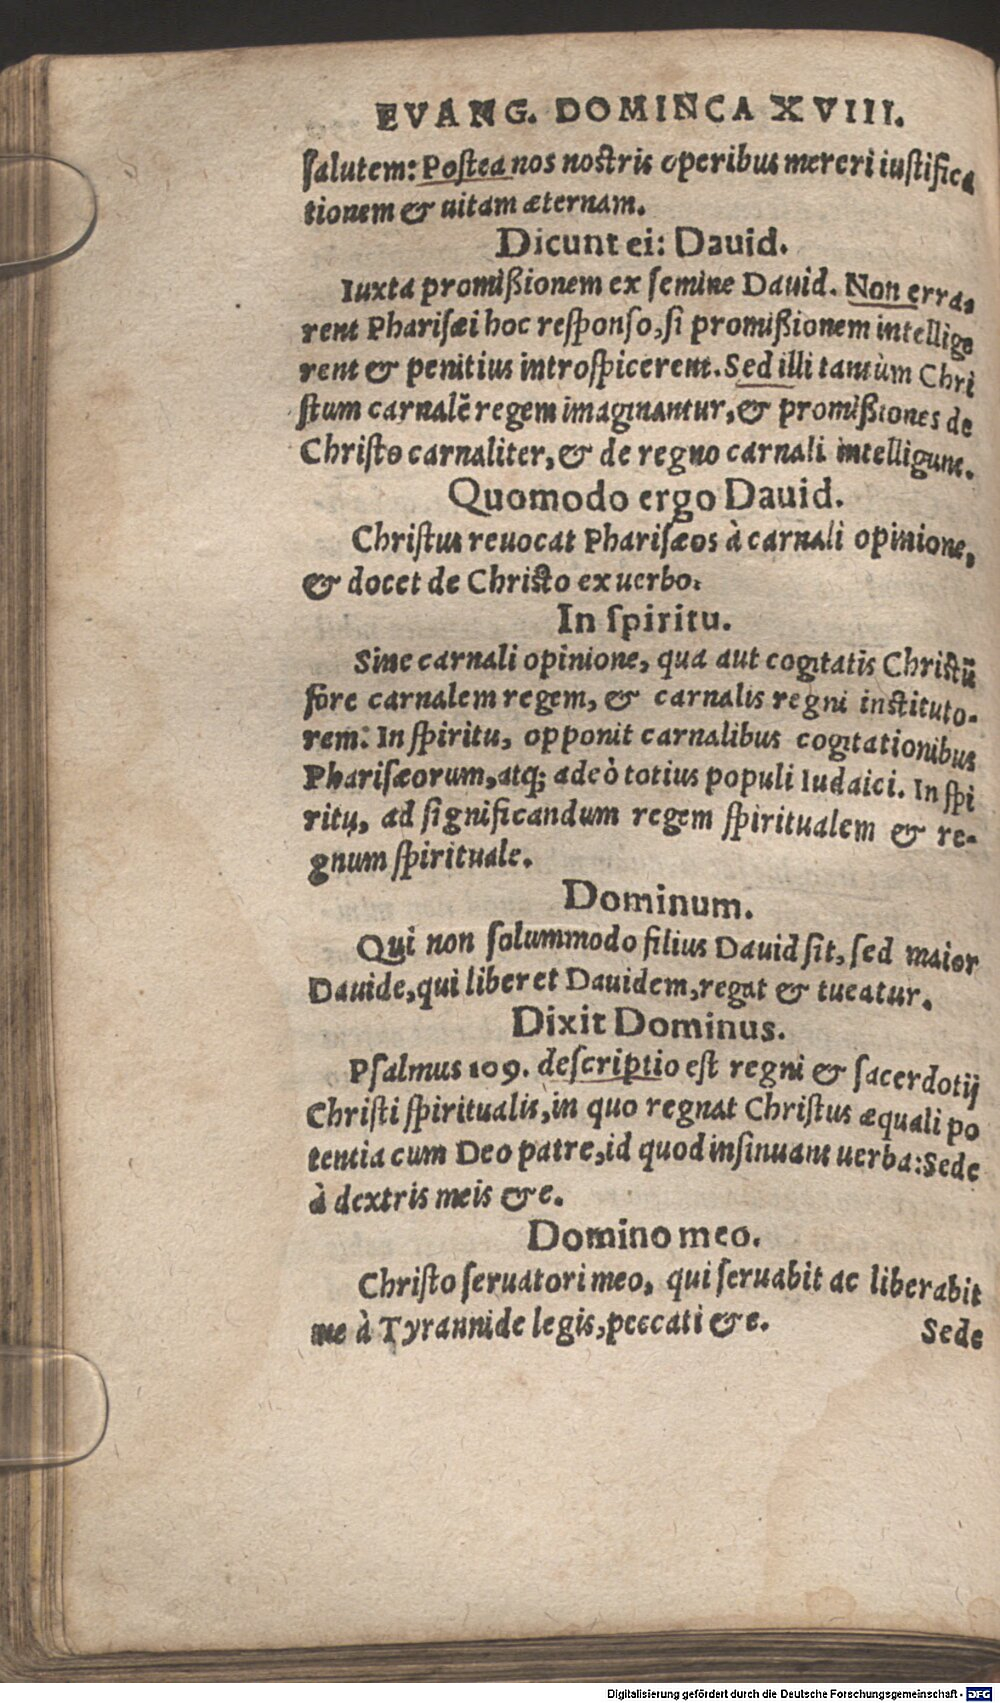 EVANG. DOMINCA XVIII.
salutem: Postea nos nostris operibus mereri iustifica
tionem & uitam æternam.
Dicunt ei: Dauid.
Iuxta promißionem ex semine Dauid. Non erra-
rent Pharisæi hoc responso, si promißionem intellige
rent & penitius introspicerent. Sed illi tantùm Chri
stum carnalẽ regem imaginantur, & promißiones de
Christo carnaliter, & de regno carnali intelligunt.
Quomodo ergo Dauid.
Christus reuocat Pharisæos à carnali opinione,
& docet de Christo ex uerbo.
In spiritu.
Sine carnali opinione, qua aut cogitatis Christũ
fore carnalem regem, & carnalis regni instituto-
rem. In spiritu, opponit carnalibus cogitationibus
Pharisæorum, atq; adeò totius populi Iudaici. In spi
ritu, ad significandum regem spiritualem & re-
gnum spirituale.
Dominum.
Qui non solummodo filius Dauid sit, sed maior
Dauide, qui liberet Dauidem, regat & tueatur.
Dixit Dominus.
Psalmus 109. descriptio est regni & sacerdotij
Christi spiritualis, in quo regnat Christus æquali po
tentia cum Deo patre, id quod insinuant uerba: Sede
à dextris meis &c.
Domino meo.
Christo seruatori meo, qui seruabit ac liberabit
me à Tyrannide legis, peccati &c.
Sede
Digitalisierung gefördert durch die Deutsche Forschungsgemeinschaft - DFG